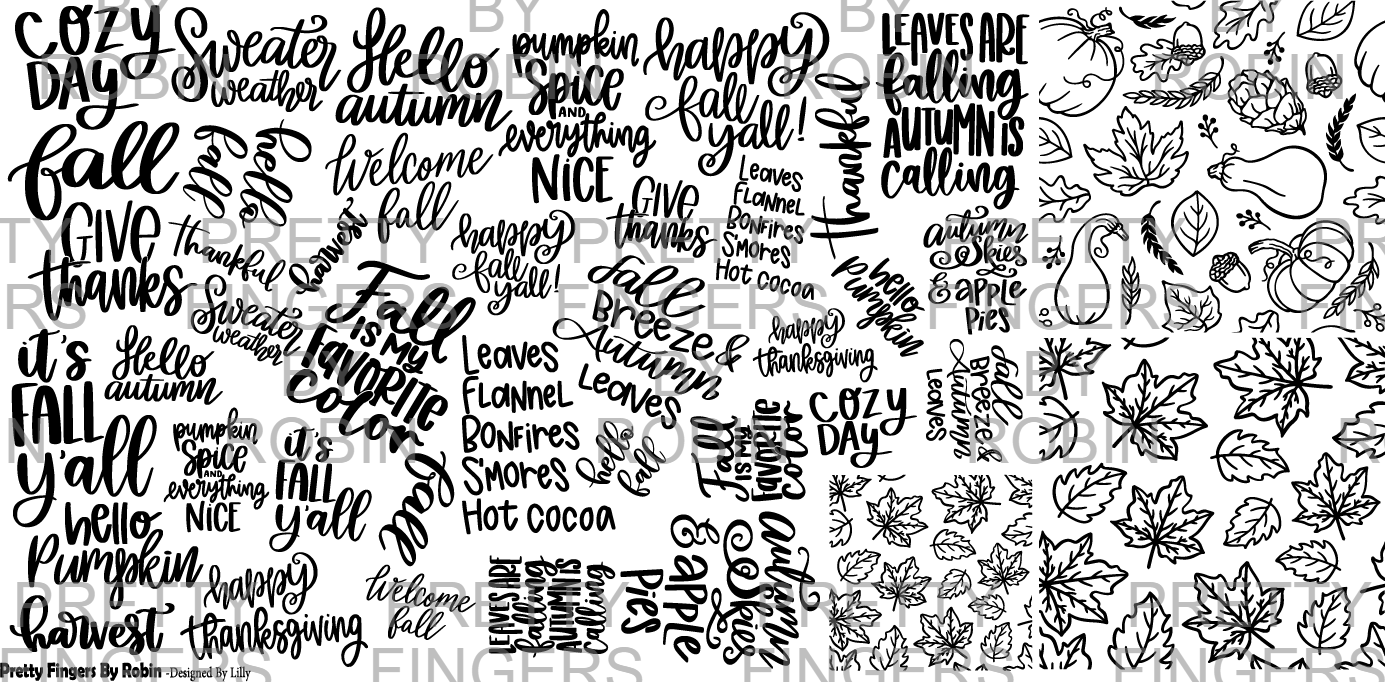 cozy
DAY
Sweater
weather
Hello
autumn
pumpkin
Spice
AND
everything
NICE
happy
fall
y'all!
thankful
LEAVES ARE
falling
AUTUMN IS
calling
fall
hello
fall
Welcome
fall
GIVE
thanks
Leaves
Flannel
Bonfires
S'mores
Hot cocoa
GIVE
thanks
thankful
harvest
happy
fall
y'all!
autumn
Skies
& apple
Pies
hello
Pumpkin
Sweater
weather
Fall
is my
FAVORITE
Color
fall
Breeze &
Autumn
Leaves
happy
thanksgiving
it's
FALL
y'all
Hello
autumn
Leaves
Flannel
Bonfires
S'mores
Hot cocoa
fall
Breeze &
Autumn
Leaves
cozy
DAY
pumpkin
Spice
AND
everything
NICE
it's
FALL
y'all
fall
hello
fall
Fall
is my
FAVORITE
Color
hello
Pumpkin
happy
thanksgiving
Welcome
fall
LEAVES ARE
falling
AUTUMN IS
calling
autumn
Skies
& apple
Pies
harvest
Pretty Fingers By Robin -Designed By Lilly
PRETTY
FINGERS
BY
ROBIN